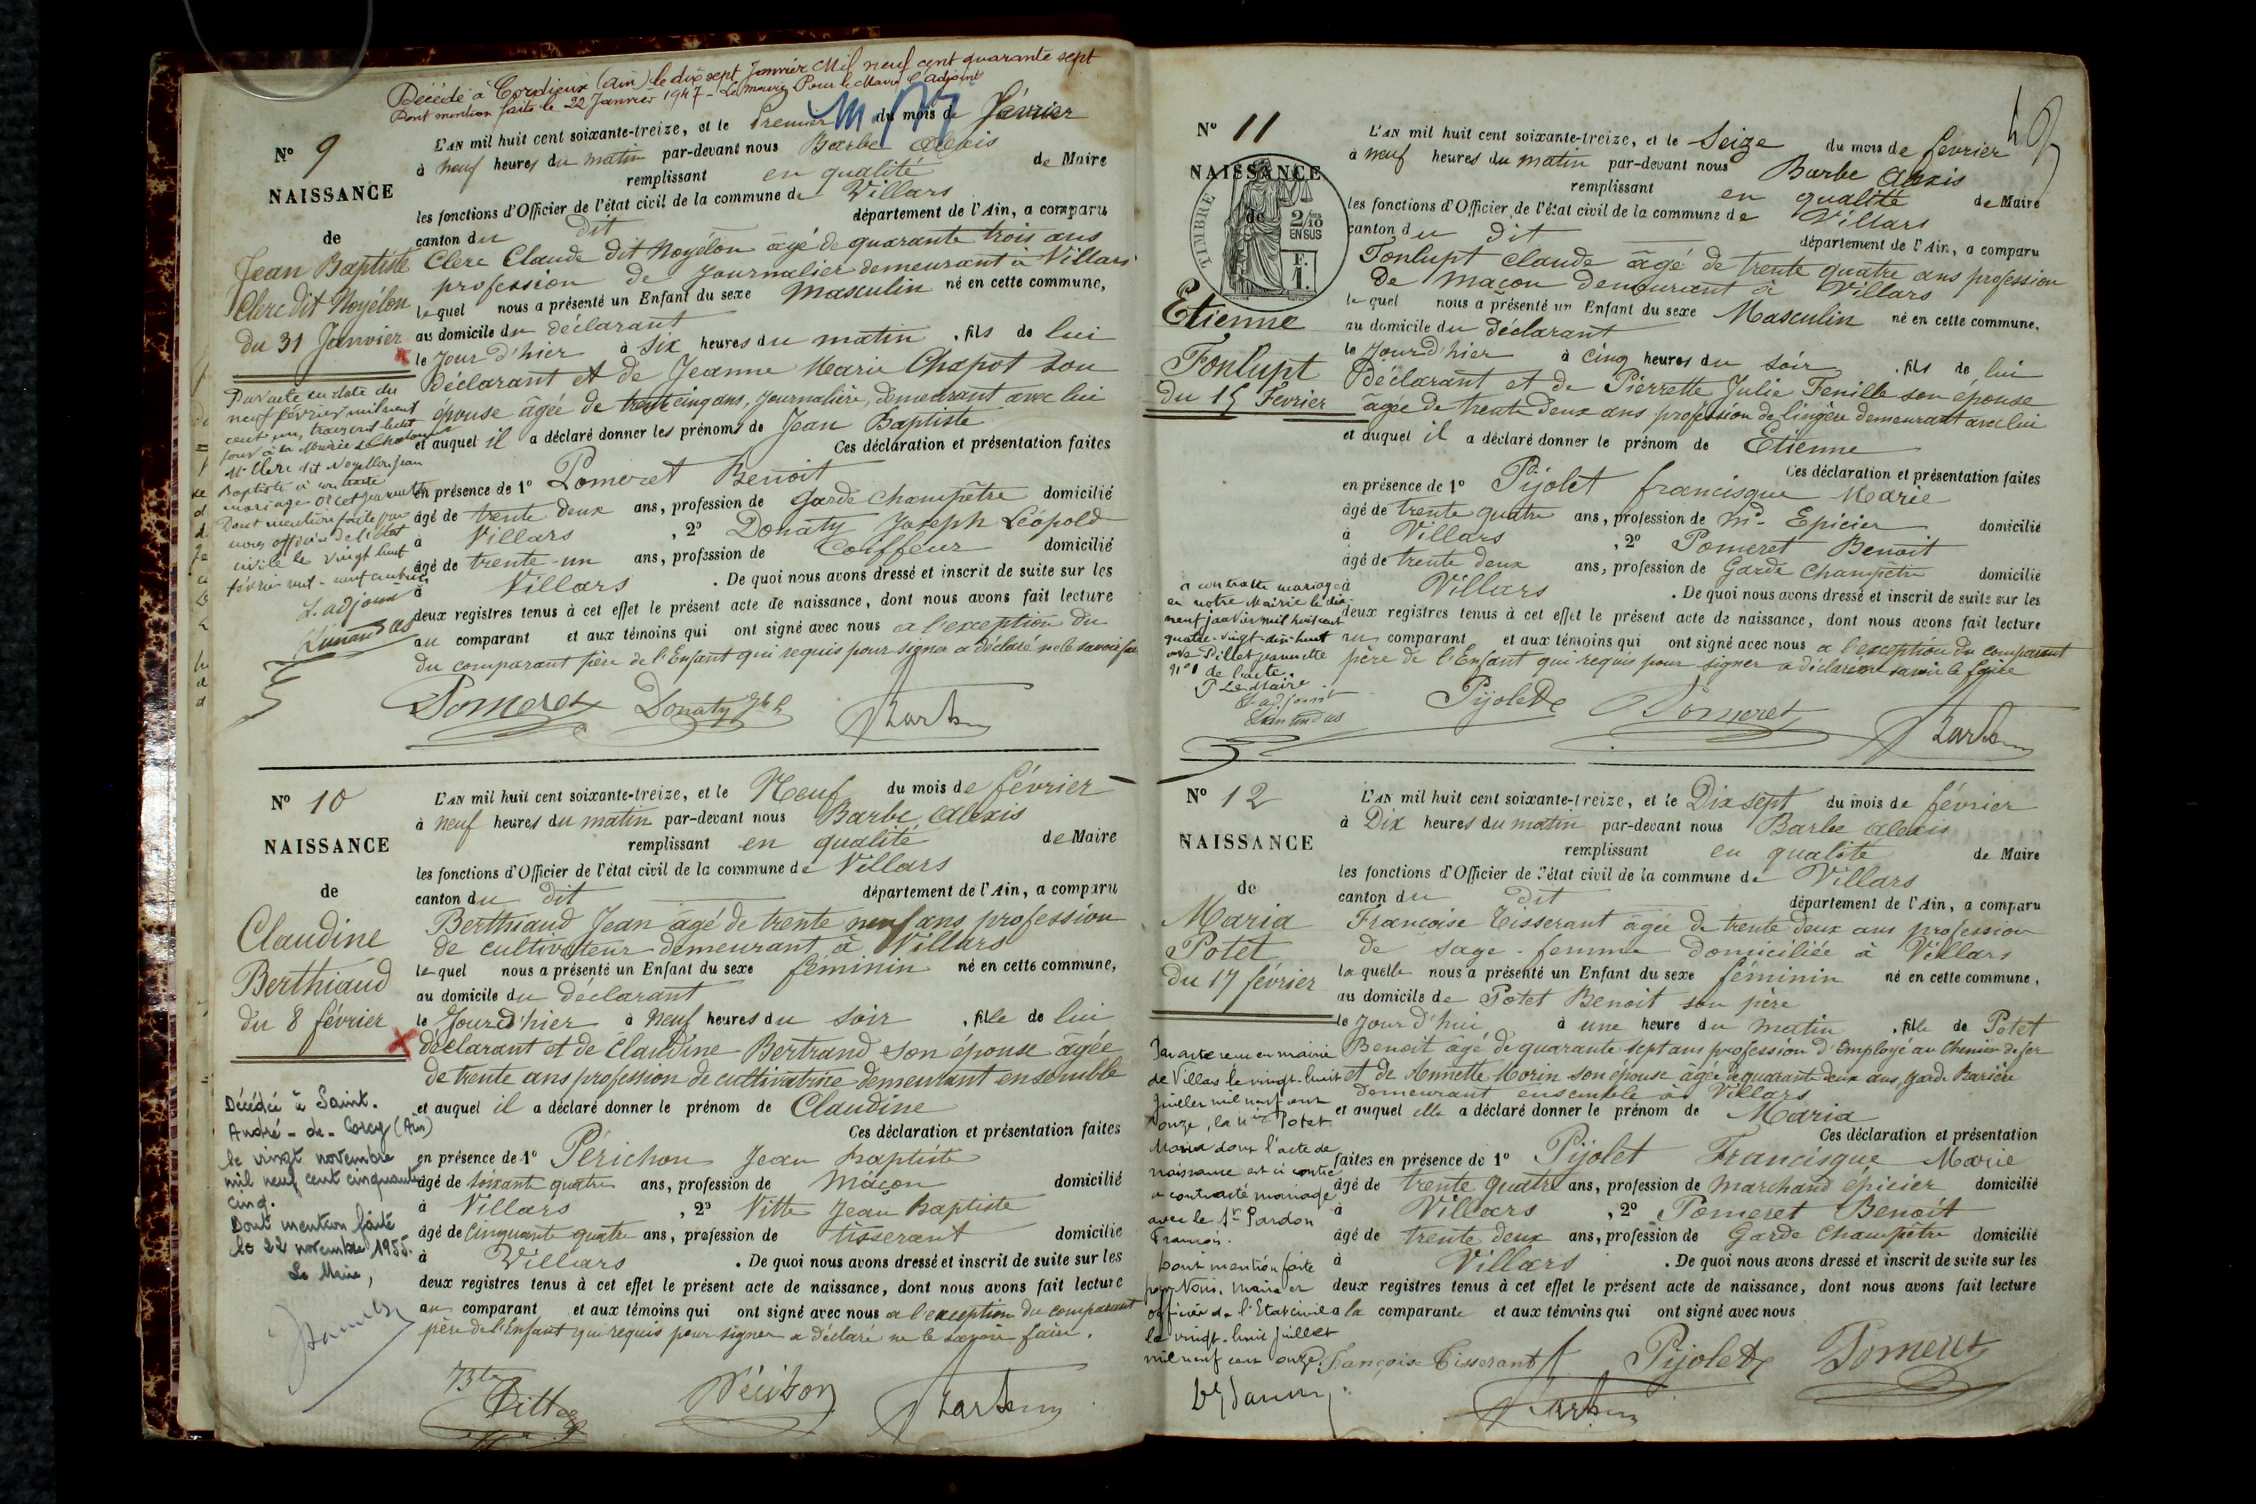 Décédé à Cordieux (Ain) le dix sept Janvier Mil neuf cent quarante sept
Dont mention faite le 22 Janvier 1947 - Le Maire, Pour le Maire l'adjoint
N° 9
NAISSANCE
de
Jean Baptiste
Clerc dit Noyélon
du 31 Janvier
L'AN mil huit cent soixante-treize, et le Premier du mois de février
à neuf heures du matin par-devant nous Barbe Alexis
remplissant en qualité de Maire
les fonctions d'Officier de l'état civil de la commune de Villars
canton du dit département de l'Ain, a comparu
Clerc Claude dit Noyélon âgé de quarante trois ans
profession de Journalier demeurant à Villars
lequel nous a présenté un Enfant du sexe Masculin né en cette commune,
au domicile du déclarant
le Jour d'hier à six heures du matin, fils de lui
déclarant et de Jeanne Marie Chapot son
épouse âgée de trente cinq ans, Journalière, demeurant avec lui
et auquel il a déclaré donner les prénoms de Jean Baptiste
Ces déclaration et présentation faites
en présence de 1° Pomeret Benoit
âgé de trente deux ans, profession de Garde champêtre domicilié
à Villars, 2° Donaty Joseph Léopold
âgé de trente-un ans, profession de Coiffeur domicilié
à Villars. De quoi nous avons dressé et inscrit de suite sur les
deux registres tenus à cet effet le présent acte de naissance, dont nous avons fait lecture
au comparant et aux témoins qui ont signé avec nous a l'exception du
du comparant père de l'Enfant qui requis pour signer a déclaré ne le savoir faire
Par acte en date du
neuf février mil neuf
cent un,
Mr Clerc dit Noyellon Jean
Baptiste a contracté
mariage
Dont mention faite par
nous officier de l'état
civile le vingt huit
février mil-neuf cent
L'adjoint
Pomeret Donaty Barbe
N° 10
NAISSANCE
de
Claudine
Berthiaud
du 8 février
L'AN mil huit cent soixante-treize, et le Neuf du mois de février
à neuf heures du matin par-devant nous Barbe Alexis
remplissant en qualité de Maire
les fonctions d'Officier de l'état civil de la commune de Villars
canton du dit département de l'Ain, a comparu
Berthiaud Jean âgé de trente neuf ans profession
de cultivateur demeurant à Villars
lequel nous a présenté un Enfant du sexe féminin né en cette commune,
au domicile du déclarant
le Jour d'hier à neuf heures du soir, fille de lui
déclarant et de Claudine Bertrand son épouse âgée
de trente ans profession de cultivatrice demeurant ensemble
et auquel il a déclaré donner le prénom de Claudine
Ces déclaration et présentation faites
en présence de 1° Périchon Jean Baptiste
âgé de soixante quatre ans, profession de Maçon domicilié
à Villars, 2° Vitte Jean Baptiste
âgé de Cinquante quatre ans, profession de tisserant domicilié
à Villars. De quoi nous avons dressé et inscrit de suite sur les
deux registres tenus à cet effet le présent acte de naissance, dont nous avons fait lecture
au comparant et aux témoins qui ont signé avec nous a l'exception du comparant
père de l'Enfant qui requis pour signer a déclaré ne le savoir faire.
Décédée à Saint-
André-de-Corcy (Ain)
le vingt novembre
mil neuf cent cinquante
cinq.
Dont mention faite
le 22 novembre 1955.
Le Maire,
Vitte Périchon Barbe
N° 11
NAISSANCE
de
TIMBRE
2/10
EN SUS
F.
1.
Etienne
Fonlupt
Du 15 Février
L'AN mil huit cent soixante-treize, et le Seize du mois de février
à neuf heures du matin par-devant nous Barbe Alexis
remplissant en qualité de Maire
les fonctions d'Officier de l'état civil de la commune de Villars
canton du dit département de l'Ain, a comparu
Fonlupt Claude âgé de trente quatre ans profession
de Maçon demeurant à Villars
lequel nous a présenté un Enfant du sexe Masculin né en cette commune,
au domicile du déclarant
le Jour d'hier à cinq heures du soir, fils de lui
Déclarant et de Pierrette Julie Fenille son épouse
âgée de trente deux ans profession de lingère demeurant avec lui
et auquel il a déclaré donner le prénom de Etienne
Ces déclaration et présentation faites
en présence de 1° Pijolet francisque Marie
âgé de trente quatre ans, profession de Md Epicier domicilié
à Villars, 2° Pomeret Benoit
âgé de trente deux ans, profession de Garde Champêtre domicilié
à Villars. De quoi nous avons dressé et inscrit de suite sur les
deux registres tenus à cet effet le présent acte de naissance, dont nous avons fait lecture
au comparant et aux témoins qui ont signé avec nous a l'exception du comparant
père de l'Enfant qui requis pour signer a déclaré ne savoir le faire
a contracté mariage
en notre Mairie le dix
neuf janvier mil huit cent
quatre-vingt-dix-huit
avec Pillet jeannette
n° 1 de l'acte.
P. Le Maire
L'adjoint
Pijolet Pomeret Barbe
N° 12
NAISSANCE
de
Maria
Potet
Du 17 février
L'AN mil huit cent soixante-treize, et le Dix sept du mois de février
à Dix heures du matin par-devant nous Barbe Alexis
remplissant en qualité de Maire
les fonctions d'Officier de l'état civil de la commune de Villars
canton du dit département de l'Ain, a comparu
Françoise Tisserant âgée de trente deux ans profession
de sage-femme domiciliée à Villars
laquelle nous a présenté un Enfant du sexe féminin né en cette commune,
au domicile de Potet Benoit son père
le Jour d'hui à une heure du matin, fille de Potet
Benoit âgé de quarante sept ans profession d'Employé au Chemin de fer
et de Annette Morin son épouse âgée de quarante deux ans, garde Barrière
demeurant ensemble à Villars
et auquel elle a déclaré donner le prénom de Maria
Ces déclaration et présentation
faites en présence de 1° Pijolet Francisque Marie
âgé de trente quatre ans, profession de Marchand épicier domicilié
à Villars, 2° Pomeret Benoit
âgé de trente deux ans, profession de Garde Champêtre domicilié
à Villars. De quoi nous avons dressé et inscrit de suite sur les
deux registres tenus à cet effet le présent acte de naissance, dont nous avons fait lecture
a la comparante et aux témoins qui ont signé avec nous
Par acte reçu en mairie
de Villars le vingt-huit
Juillet mil neuf cent
onze, la Potet
Maria dont l'acte de
naissance est ci contre
a contracté mariage
avec le Sr Pardon
François.
Dont mention faite
par Nous, Maire et
officier de l'Etat civil
le vingt-huit Juillet
mil neuf cent onze.
Françoise Tisserant Pijolet Pomeret
Barbe